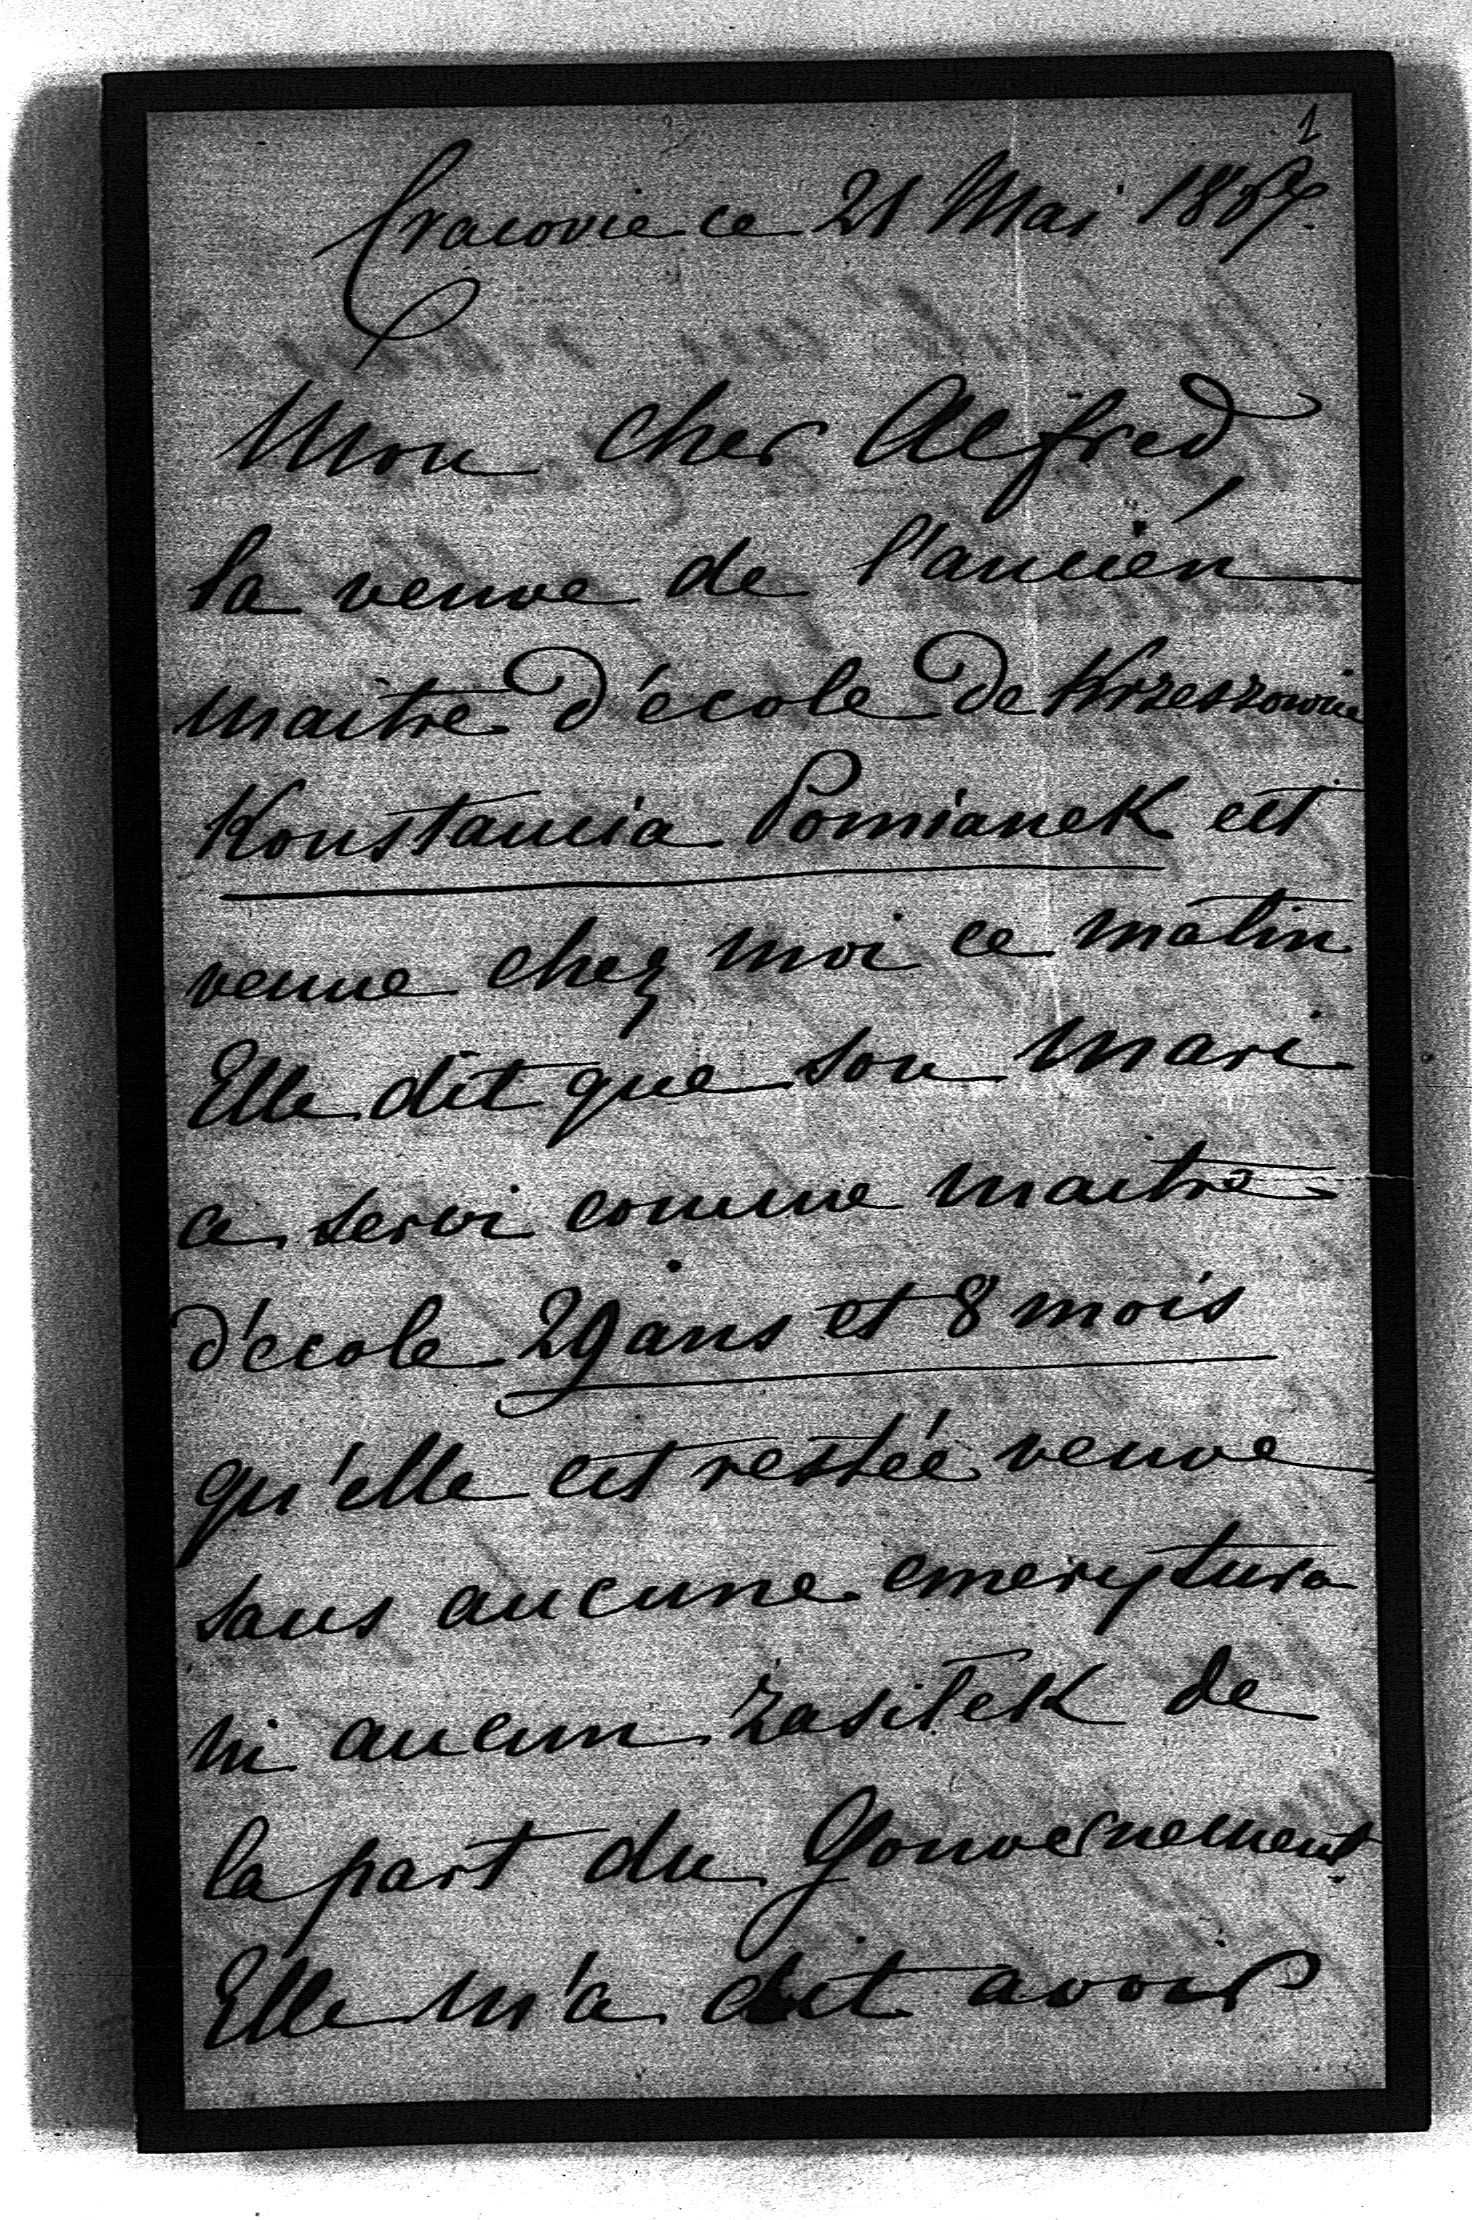 1
Cracovie ce 21 Mai
Mon cher Alfred
la veuve de l'ancien
maitre d'école de Krzeszowice
Konstancia Pomianek est
venue chez moi ce matin
Elle dit que son mari
a servi comme maitre
d'école 29 ans et 8 mois
qu'elle est restée veuve
sans aucune emerytura
ni aucun zasiłek de
la part du Gouvernement.
Elle m'a dit avoir